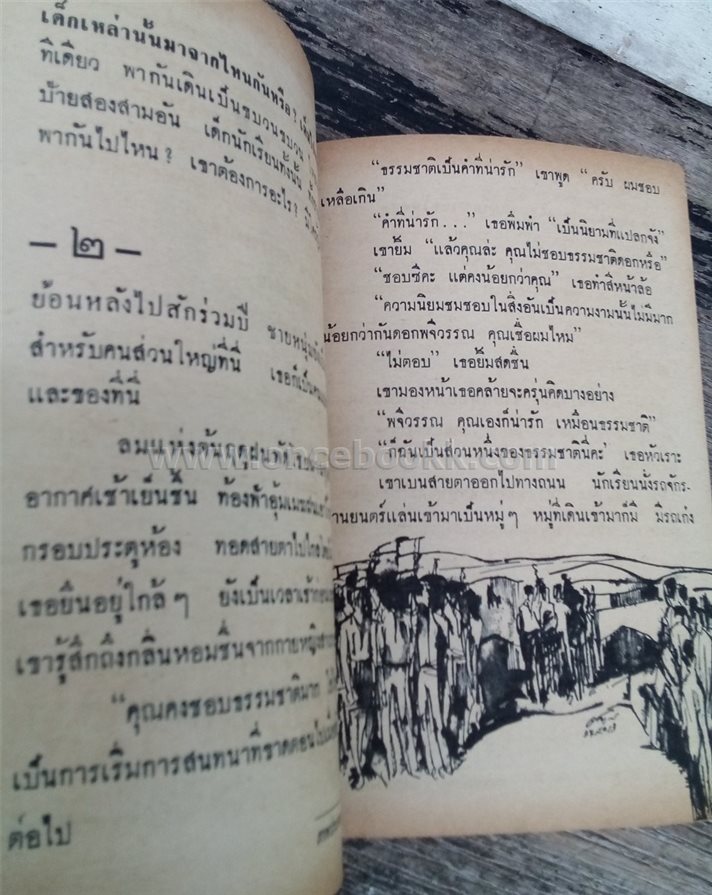 เด็กเหล่านั้นมาจากไหนกันหรือ?
ทีเดียว พากันเดินเป็นขบวนขบวน
ป้ายสองสามอัน เด็กนักเรียนทั้งนั้น
พากันไปไหน? เขาต้องการอะไร?
– ๒ –
ย้อนหลังไปสักร่วมปี ชายหนุ่ม
สำหรับคนส่วนใหญ่ที่นี่ เธอก็เป็น
และของที่นี่
ลมแห่งต้นฤดูฝนพัด
อากาศเช้าเย็นชื้น ท้องฟ้าอุ้มเมฆฝน
กรอบประตูห้อง ทอดสายตาไปไกล
เธอยืนอยู่ใกล้ๆ ยังเป็นเวลาเช้า
เขารู้สึกถึงกลิ่นหอมชื่นจากกายหญิง
“คุณคงชอบธรรมชาติมาก
เป็นการเริ่มการสนทนาที่ขาดตอนไป
ต่อไป
“ธรรมชาติเป็นคำที่น่ารัก” เขาพูด “ครับ ผมชอบ
เหลือเกิน”
“คำที่น่ารัก...” เธอพึมพำ “เป็นนิยามที่แปลกจัง”
เขายิ้ม “แล้วคุณล่ะ คุณไม่ชอบธรรมชาติดอกหรือ”
“ชอบซีคะ แต่คงน้อยกว่าคุณ” เธอทำสีหน้าล้อ
“ความนิยมชมชอบในสิ่งอันเป็นความงามนั้นไม่มีมาก
น้อยกว่ากันดอกพจีวรรณ คุณเชื่อผมไหม”
“ไม่ตอบ” เธอยิ้มสดชื่น
เขามองหน้าเธอคล้ายจะครุ่นคิดบางอย่าง
“พจีวรรณ คุณเองก็น่ารัก เหมือนธรรมชาติ”
“ก็ฉันเป็นส่วนหนึ่งของธรรมชาตินี่คะ’ เธอหัวเราะ
เขาเบนสายตาออกไปทางถนน นักเรียนนั่งรถจักร-
านยนตร์แล่นเข้ามาเป็นหมู่ๆ หมู่ที่เดินเข้ามาก็มี มีรถเก๋ง
www.oncebookk.com